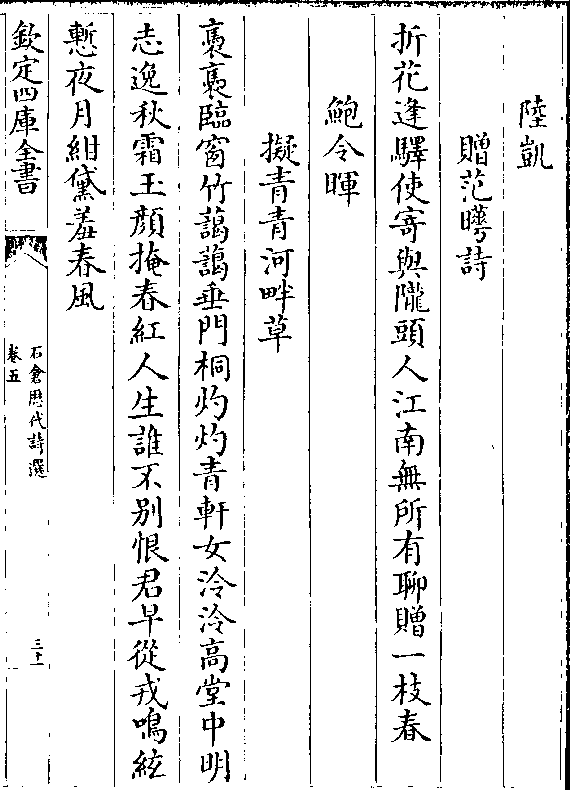 陸凱
贈范曄詩
折花逢驛使寄與隴頭人江南無所有聊贈一枝春
鮑令暉
擬青青河畔草
裊裊臨窗竹藹藹垂門桐灼灼青軒女泠泠高堂中明
志逸秋霜玉顔掩春紅人生誰不别恨君早從戎鳴絃
慙夜月紺黛羞春風
欽定四庫全書
石倉歷代詩選
卷五
三十一